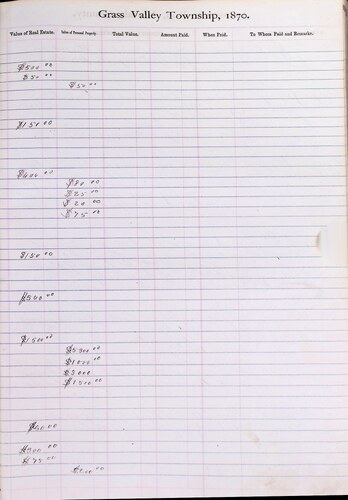 Grass Valley Township, 1870.
Value of Real Estate. Value of Personal Property. Total Value. Amount Paid. When Paid. To Whom Paid and Remarks.
$500 00
$50 00
$50 00
$150 00
$400 00
$80 00
$25 00
$20 00
$75 00
$150 00
$500 00
$1500 00
$1000 00
$1500 00
$300 00
$75 00